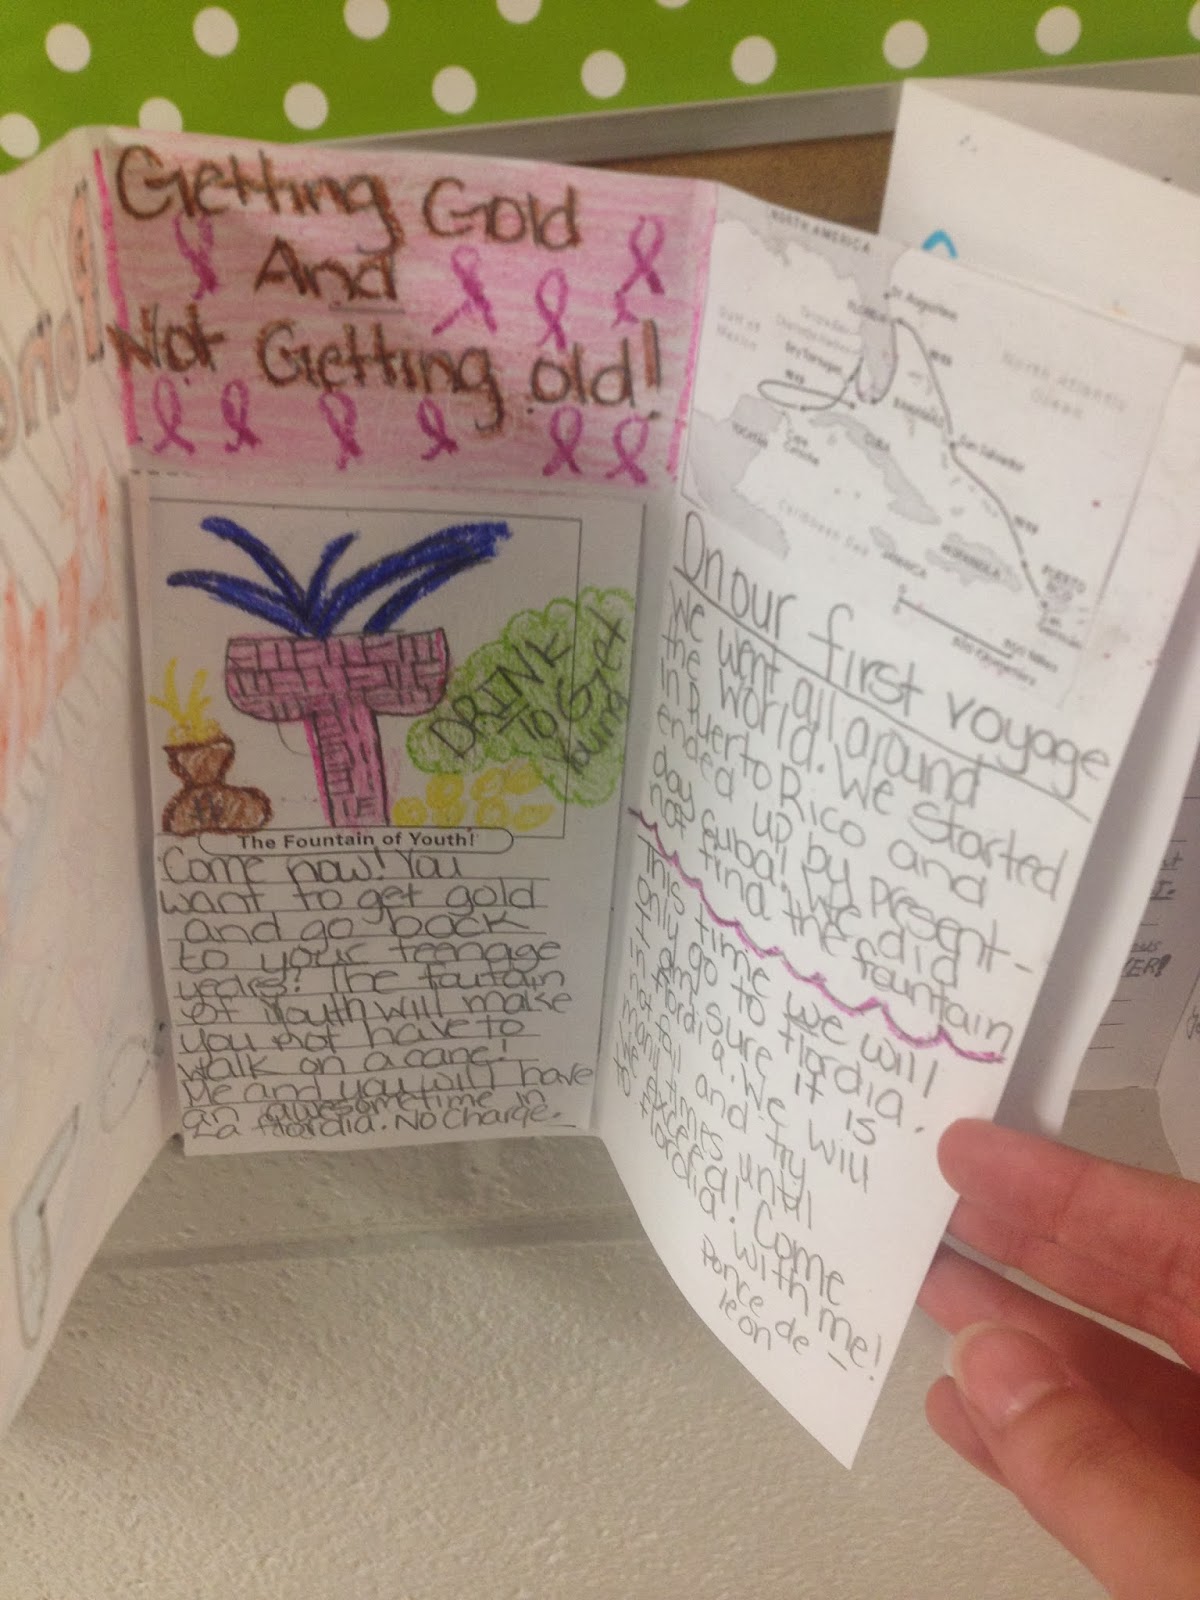 Getting Gold
And
Not Getting old!
DRINK
TO Get
Young
The Fountain of Youth!
Come now! You
want to get gold
and go back
to your teenage
years? The foutain
of Youth will make
you not have to
walk on a cane!
Me and you will have
an awesome time in
La flordia. No Charge.
NORTH AMERICA
St. Augustine
FLORIDA
Gulf of
Mexico
North Atlantic
Ocean
Dry Tortugas
San Salvador
CUBA
YUCATAN
Caribbean Sea
JAMAICA
HISPANIOLA
PUERTO
RICO
On our first voyage
We went all around
the World. We started
In Puerto Rico and
ended up by present-
day Cuba! We did
not find the fountain
This time we will
only go to flordia.
I am sure it is
in flordia. We will
not fail and try
many times until
we exceed! Come
to flordia. with me!
Ponce de -
leon